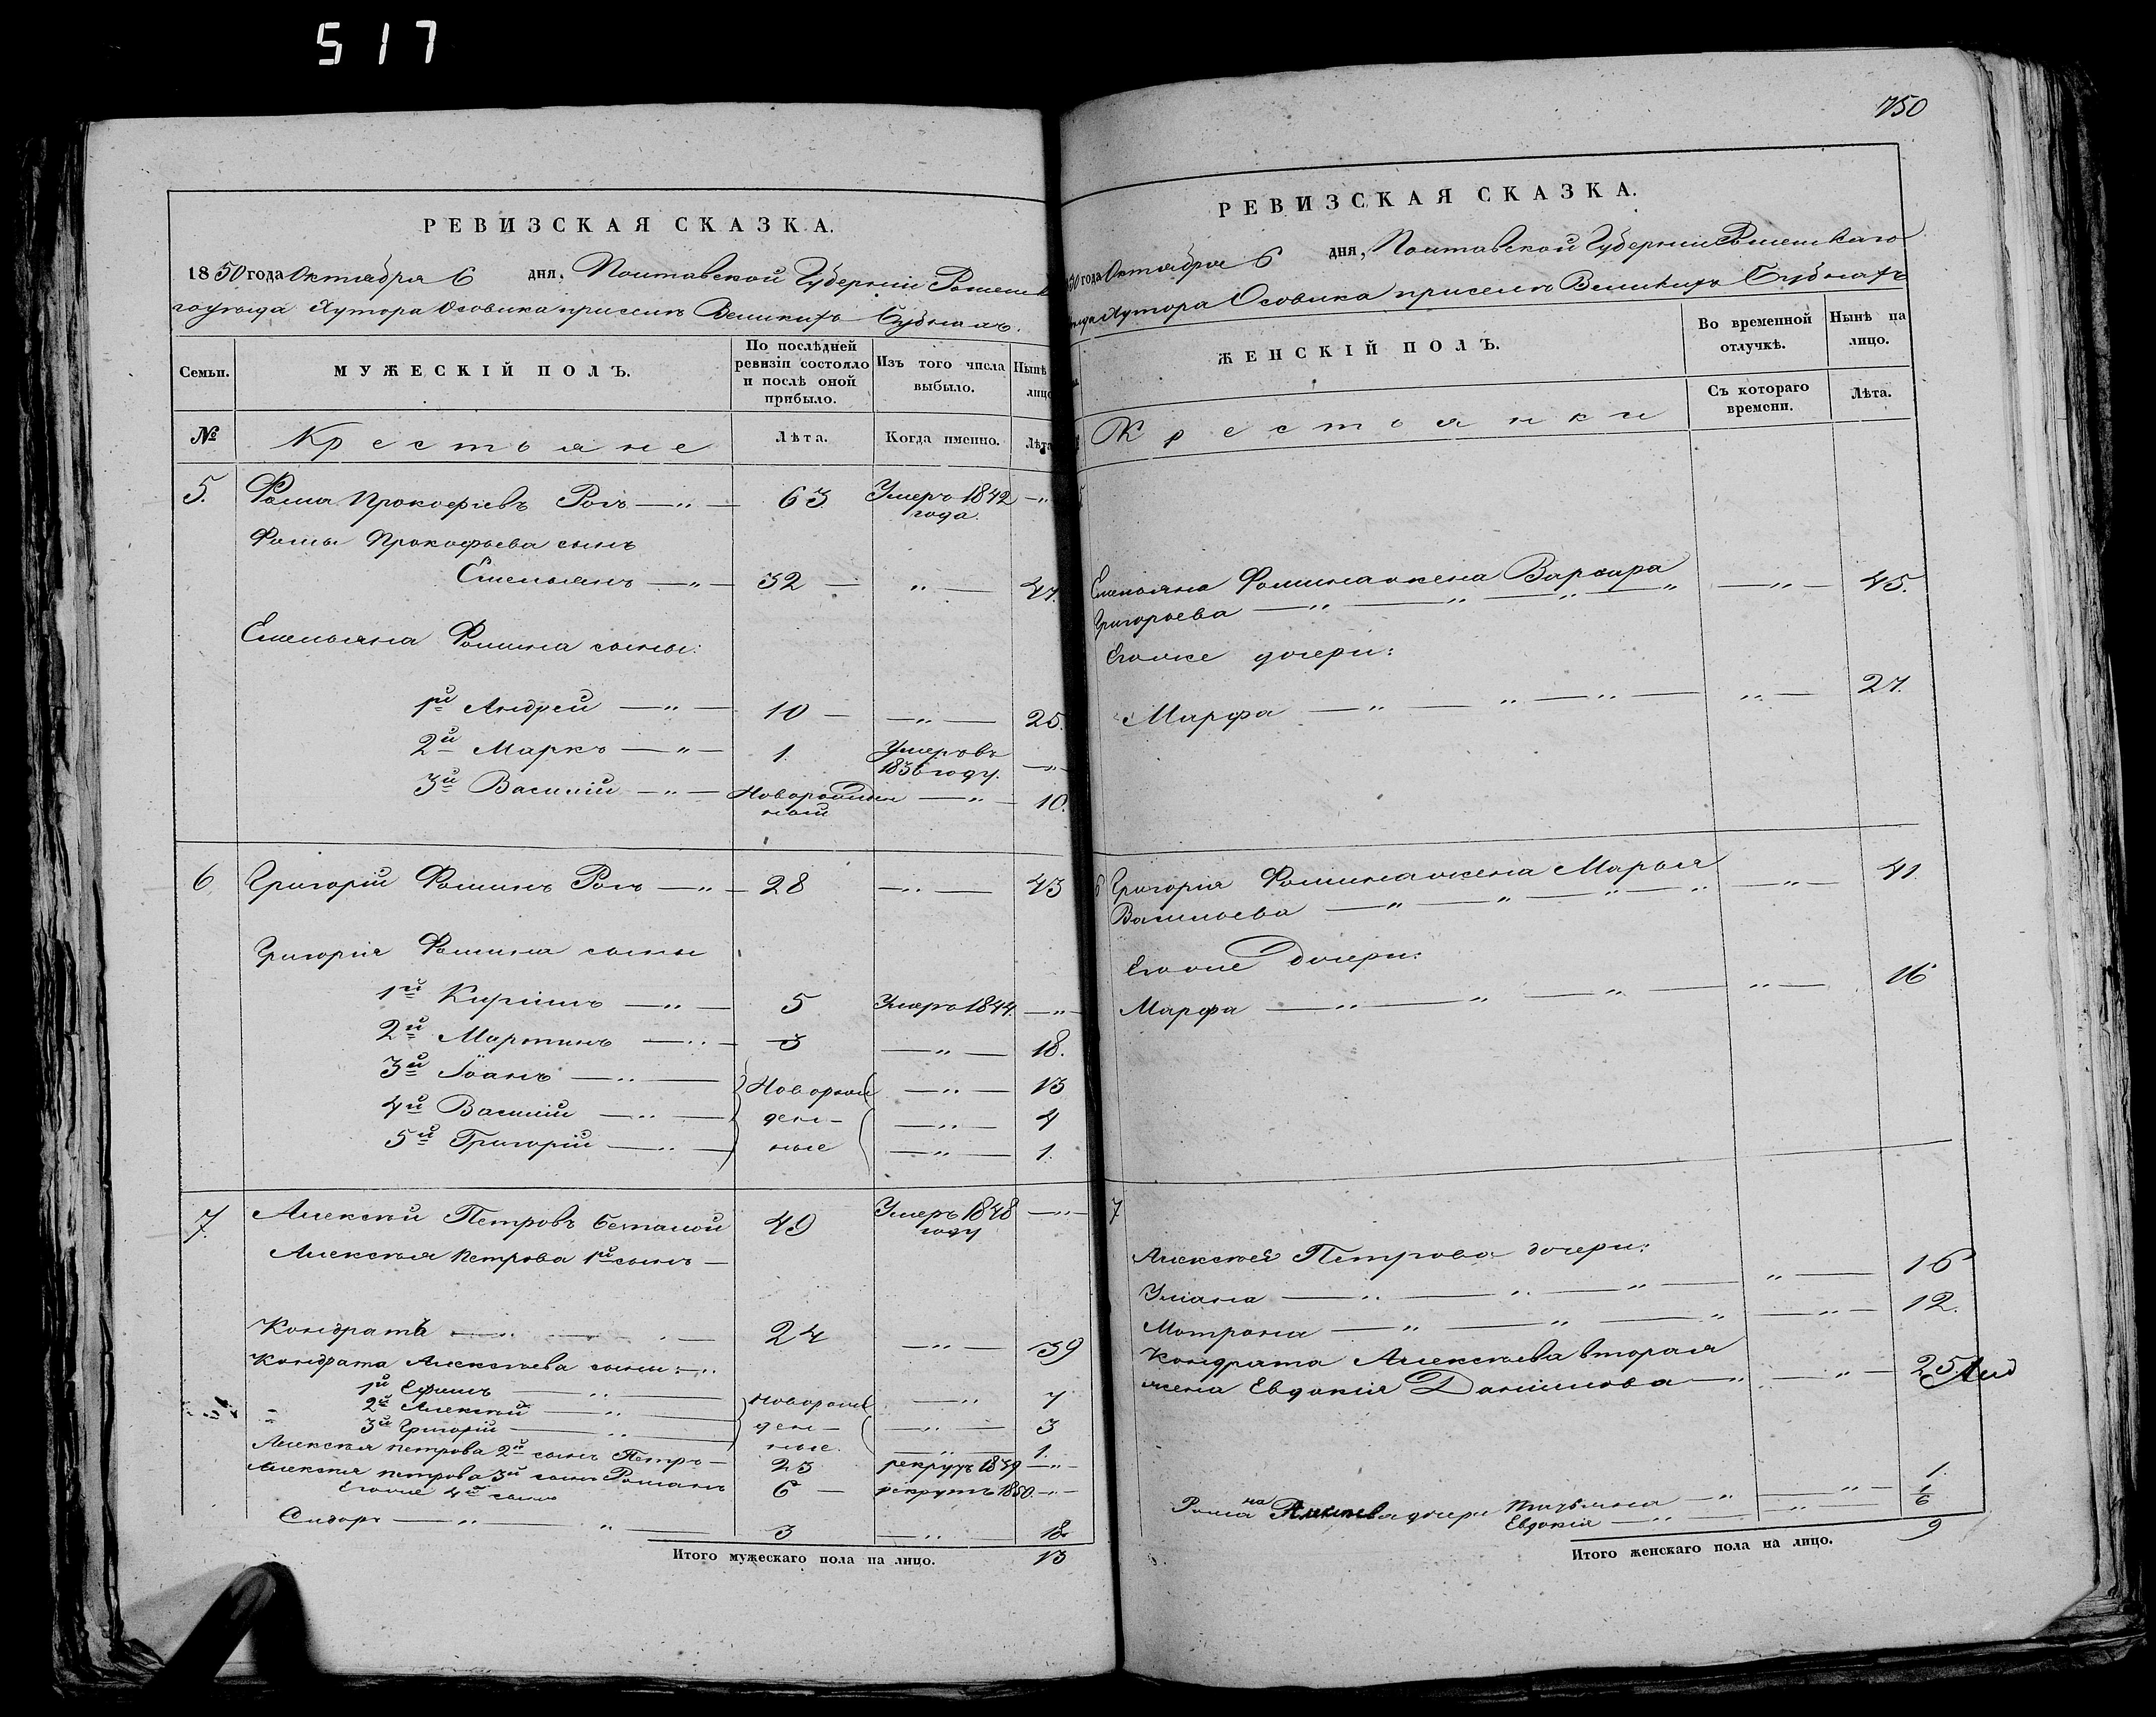 517
РЕВИЗСКАЯ СКАЗКА.
1850 года Октября 6 дня, Полтавской Губерніи
гоуѣзда Хутора Осовика присемъ Великихъ
Семьи.
МУЖЕСКІЙ ПОЛЪ.
По послѣдней ревизіи состояло и послѣ оной прибыло.
Изъ того числа выбыло.
Нынѣ лицо
№
Крестьяне
Лѣта.
Когда именно.
Лѣта
5. Фома Прокофіевъ Рогъ — „ — 63 Умеръ 1842 года. — „
Фомы Прокофьева сынъ
Емельянъ — „ — 32 — „ — 47.
Емельяна Фомина сыны:
1й Андрей — „ — 10 — — „ — 25.
2й Марко — „ — 1. Умеръ въ 1836 году. — „ —
3й Василій — „ — Новорожден ный — „ — 10.
6. Григорій Фоминъ Рогъ — „ — 28 — „ — 43
Григорія Фомина сыны
1й Кирилъ — „ — 5 Умеръ 1844. — „ —
2й Мартинъ — „ — 3 — „ — 18.
3й Іоанъ — „ — Новорож — „ — 13
4й Василій — „ — ден — — „ — 4
5й Григорій — „ — ные — „ — 1.
7. Алексѣй Петровъ 49 Умеръ 1848 году — „ —
Алексѣя Петрова 1й сынъ —
Кондратъ — „ — 24 — „ — 39
Кондрата Алексѣева сыны: — „
1й Ефимъ — „ — Новорож — „ 7
2й Алексѣй — „ — ден — — „ — 3
3й Григорій — „ — ные. — „ — 1.
Алексѣя Петрова 2й сынъ Петръ — 23 рекрутъ 1839 — „ —
Алексѣя Петрова 3й сынъ Романъ 6 — рекрутъ 1850. — „ —
Егоже 4й сынъ
Сидоръ — „ — „ — 3 — „ — 18
Итого мужескаго пола на лицо. 13
750
РЕВИЗСКАЯ СКАЗКА.
50 года Октября 6 дня, Полтавской Губерніи
Хутора Осовика присемъ Великихъ
ЖЕНСКІЙ ПОЛЪ.
Во временной отлучкѣ.
Нынѣ на лицо.
Крестьянки
Съ котораго времени.
Лѣта.
Емельяна Фомина жена Варвара
Григорьева — „ — „ — „ — „ — „ — 45.
Егоже дочери:
Марфа — „ — „ — „ — „ — 27.
6 Григорія Фомина жена Марья
Васильева — „ — „ — „ — „ — „ — 41.
Егоже дочери:
Марфа — „ — „ — „ — „ — 16
7
Алексѣя Петрова дочери:
Уліана — „ — „ — „ — „ — 16
Мотрона — „ — „ — „ — „ — 12.
Кондрата Алексѣева вторая
жена Евдокія Данилова — „ — „ — 25.
Романа Алексѣева дочери Татьяна — „ — „ — 1.
Евдокія — „ — „ — 1/6
Итого женскаго пола на лицо. 9